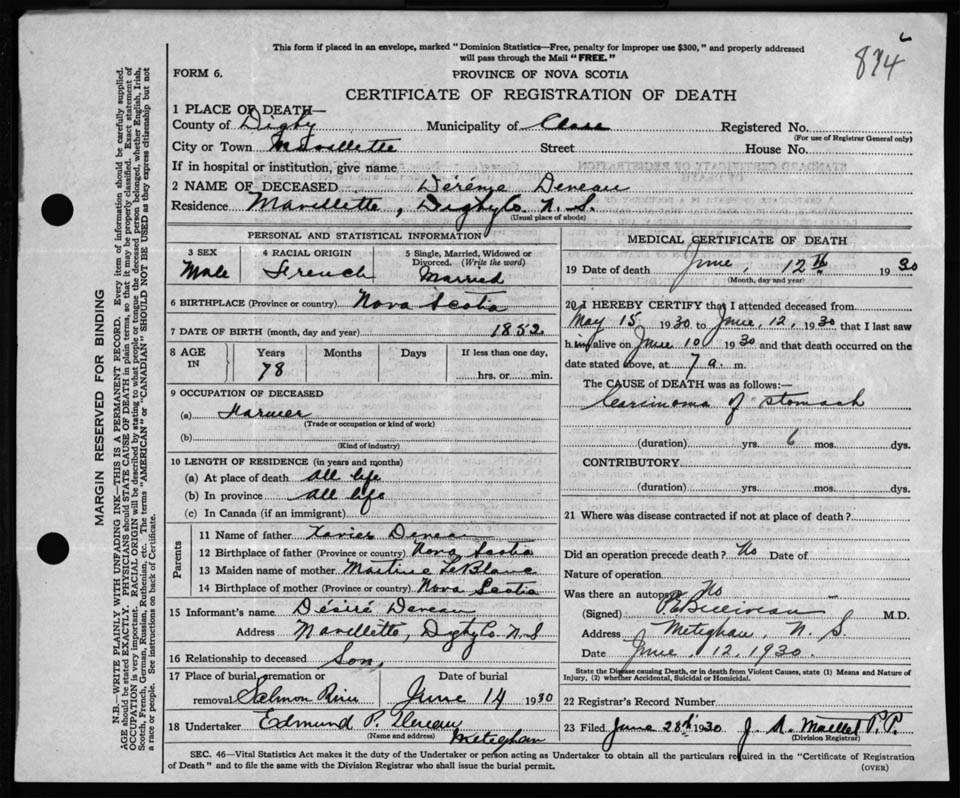 874
This form if placed in an envelope, marked "Dominion Statistics—Free, penalty for improper use $300," and properly addressed
will pass through the Mail "FREE."
FORM 6.
PROVINCE OF NOVA SCOTIA
CERTIFICATE OF REGISTRATION OF DEATH
1 PLACE OF DEATH—
County of Digby Municipality of Clare Registered No.
(For use of Registrar General only)
City or Town Mavillette Street House No.
If in hospital or institution, give name
2 NAME OF DECEASED Deveau
Residence Mavillette, Digby Co N.S.
(Usual place of abode)
PERSONAL AND STATISTICAL INFORMATION
3 SEX
Male
4 RACIAL ORIGIN
French
5 Single, Married, Widowed or
Divorced. (Write the word)
Married
6 BIRTHPLACE (Province or country) Nova Scotia
7 DATE OF BIRTH (month, day and year) 1852
8 AGE IN
Years Months Days If less than one day,
78
hrs. or min.
9 OCCUPATION OF DECEASED
(a) Farmer
(Trade or occupation or kind of work)
(b)
(Kind of industry)
10 LENGTH OF RESIDENCE (in years and months)
(a) At place of death all life
(b) In province all life
(c) In Canada (if an immigrant)
Parents
11 Name of father Xavier Deveau
12 Birthplace of father (Province or country) Nova Scotia
13 Maiden name of mother Martine LeBlanc
14 Birthplace of mother (Province or country) Nova Scotia
15 Informant's name Désiré Deveau
Address Mavillette, Digby Co. N.S
16 Relationship to deceased Son,
17 Place of burial, cremation or Date of burial
removal Salmon River June 14 1930
18 Undertaker Edmund P. Deveau
(Name and address) Meteghan
MEDICAL CERTIFICATE OF DEATH
19 Date of death June, 12th 1930
(Month, day and year)
20 I HEREBY CERTIFY that I attended deceased from
May 15 1930 to June, 12, 1930 that I last saw
him alive on June 10 1930 and that death occurred on the
date stated above, at 7 a. m.
The CAUSE of DEATH was as follows:—
Carcinoma of stomach
(duration) yrs. 6 mos. dys.
CONTRIBUTORY
(duration) yrs. mos. dys.
21 Where was disease contracted if not at place of death?
Did an operation precede death? No Date of
Nature of operation
Was there an autopsy No
(Signed) M.D.
Address Meteghan, N. S.
Date June, 12, 1930.
State the Disease causing Death, or in death from Violent Causes, state (1) Means and Nature of
Injury, (2) whether Accidental, Suicidal or Homicidal.
22 Registrar's Record Number
23 Filed June 28th 1930 J. A. Maillet P.P.
(Division Registrar)
SEC. 46—Vital Statistics Act makes it the duty of the Undertaker or person acting as Undertaker to obtain all the particulars required in the "Certificate of Registration
of Death" and to file the same with the Division Registrar who shall issue the burial permit.
(OVER)
MARGIN RESERVED FOR BINDING
N.B.—WRITE PLAINLY WITH UNFADING INK—THIS IS A PERMANENT RECORD. Every item of information should be carefully supplied.
AGE should be stated EXACTLY. PHYSICIANS should STATE CAUSE OF DEATH in plain terms, so that it may be properly classified. Exact statement of
OCCUPATION is very important. RACIAL ORIGIN will be described by stating to what people or tongue the deceased person belonged, whether English, Irish,
Scotch, French, German, Russian, Ruthenian, etc. The terms "AMERICAN" or "CANADIAN" SHOULD NOT BE USED as they express citizenship but not
a race or people. See instructions on back of Certificate.